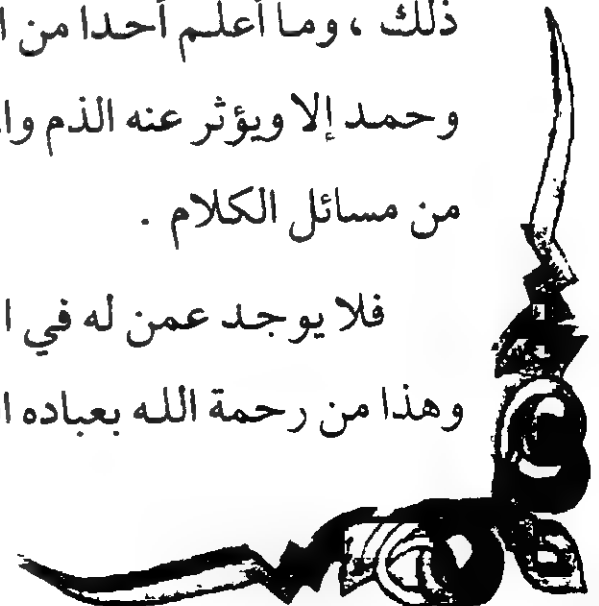 ذلك ، وما أعلم أحدا من
وحمد إلا ويؤثر عنه الذم
من مسائل الكلام .
فلا يوجد عمن له في
وهذا من رحمة الله بعباده